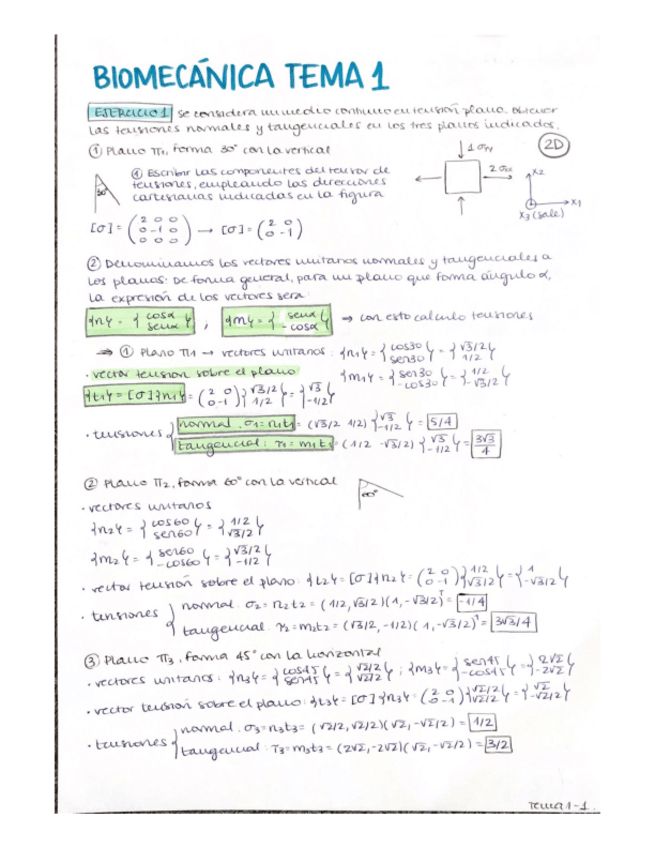 BIOMECÁNICA TEMA 1
EJERCICIO 1 se considera un medio continuo en tensión plana. Obtener
las tensiones normales y tangenciales en los tres planos indicados.
① Plano π₁, forma 30° con la vertical
2D
① Escribir las componentes del tensor de
tensiones, empleando las direcciones
cartesianas indicadas en la figura
30°
1 σyy
2 σxx
x2
x1
x3 (sale)
[σ] = (2 0 0 / 0 -1 0 / 0 0 0) → [σ] = (2 0 / 0 -1)
② Denominamos los vectores unitarios normales y tangenciales a
los planos: De forma general, para un plano que forma ángulo α,
la expresión de los vectores será:
{n} = {cosα / senα} , {m} = {senα / -cosα} → con esto calculo tensiones
⇒ ① Plano π1 → vectores unitarios: {n1} = {cos30 / sen30} = {√3/2 / 1/2}
· vector tensión sobre el plano {m1} = {sen30 / -cos30} = {1/2 / -√3/2}
{t1} = [σ]{n1} = (2 0 / 0 -1) {√3/2 / 1/2} = {√3 / -1/2}
· tensiones { normal. σ1 = n1t1 = (√3/2 1/2) {√3 / -1/2} = 5/4
tangencial: τ1 = m1t1 = (1/2 -√3/2) {√3 / -1/2} = 3√3/4
② Plano π2, forma 60° con la vertical
60°
· vectores unitarios
{n2} = {cos60 / sen60} = {1/2 / √3/2}
{m2} = {sen60 / -cos60} = {√3/2 / -1/2}
· vector tensión sobre el plano: {t2} = [σ]{n2} = (2 0 / 0 -1) {1/2 / √3/2} = {1 / -√3/2}
· tensiones { normal. σ2 = n2t2 = (1/2, √3/2)(1, -√3/2)ᵀ = -1/4
tangencial. τ2 = m2t2 = (√3/2, -1/2)(1, -√3/2)ᵀ = 3√3/4
③ Plano π3, forma 45° con la horizontal
· vectores unitarios: {n3} = {cos45 / sen45} = {√2/2 / √2/2} ; {m3} = {sen45 / -cos45} = {2√2 / -2√2}
· vector tensión sobre el plano: {t3} = [σ]{n3} = (2 0 / 0 -1) {√2/2 / √2/2} = {√2 / -√2/2}
· tensiones { normal. σ3 = n3t3 = (√2/2, √2/2)(√2, -√2/2) = 1/2
tangencial: τ3 = m3t3 = (2√2, -2√2)(√2, -√2/2) = 3/2
Tema 1-1.